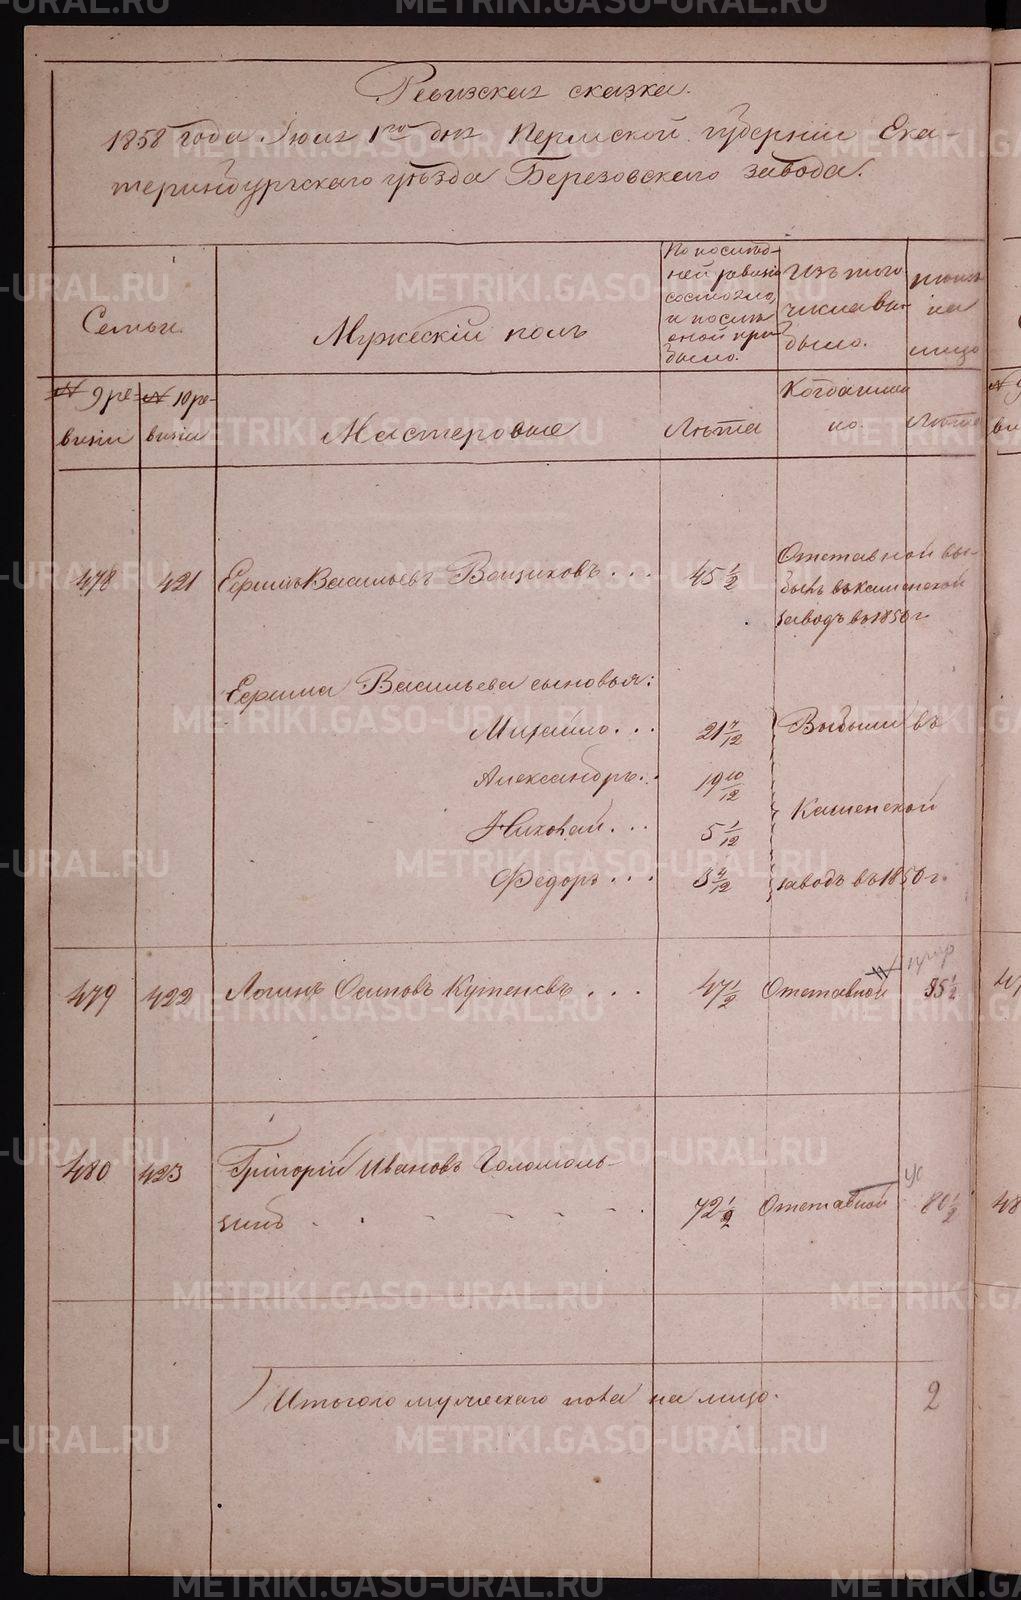 Ревизская сказка.
1858 года Июля 1го дня Пермской губернiи Ека-
теринбургскаго уѣзда Березовскаго завода.
Семьи.
Мужескiй полъ
По послѣд-
ней ревизiи
состояло,
и послѣ
оной при-
было.
Изъ того
числа вы-
было.
на
лицо
№ 9 ре-
визiи
№ 10 ре-
визiи
Мастеровые
Лѣта
Когда имен-
но.
Лѣта
478 421 Ефимъ Васильевъ Вощиковъ . . . 45 1/2
Отставной вы-
былъ въ Каменской
заводъ въ 1850 г.
Ефима Васильева сыновья:
Михайло . . . 21 7/12 Выбыли въ
Александръ . . 19 10/12
Николай . . . 5 1/12 Каменской
Федоръ . . . 3 4/12 заводъ въ 1850 г.
479 422 Логинъ Осиповъ Кутеневъ . . . 47 1/2 Отставной 55 1/2
480 423 Григорiй Ивановъ Голомоль-
зинъ . - - - - - . 72 1/2 Отставной 80 1/2
Итогого мужескаго пола на лицо. 2
METRIKI.GASO-URAL.RU